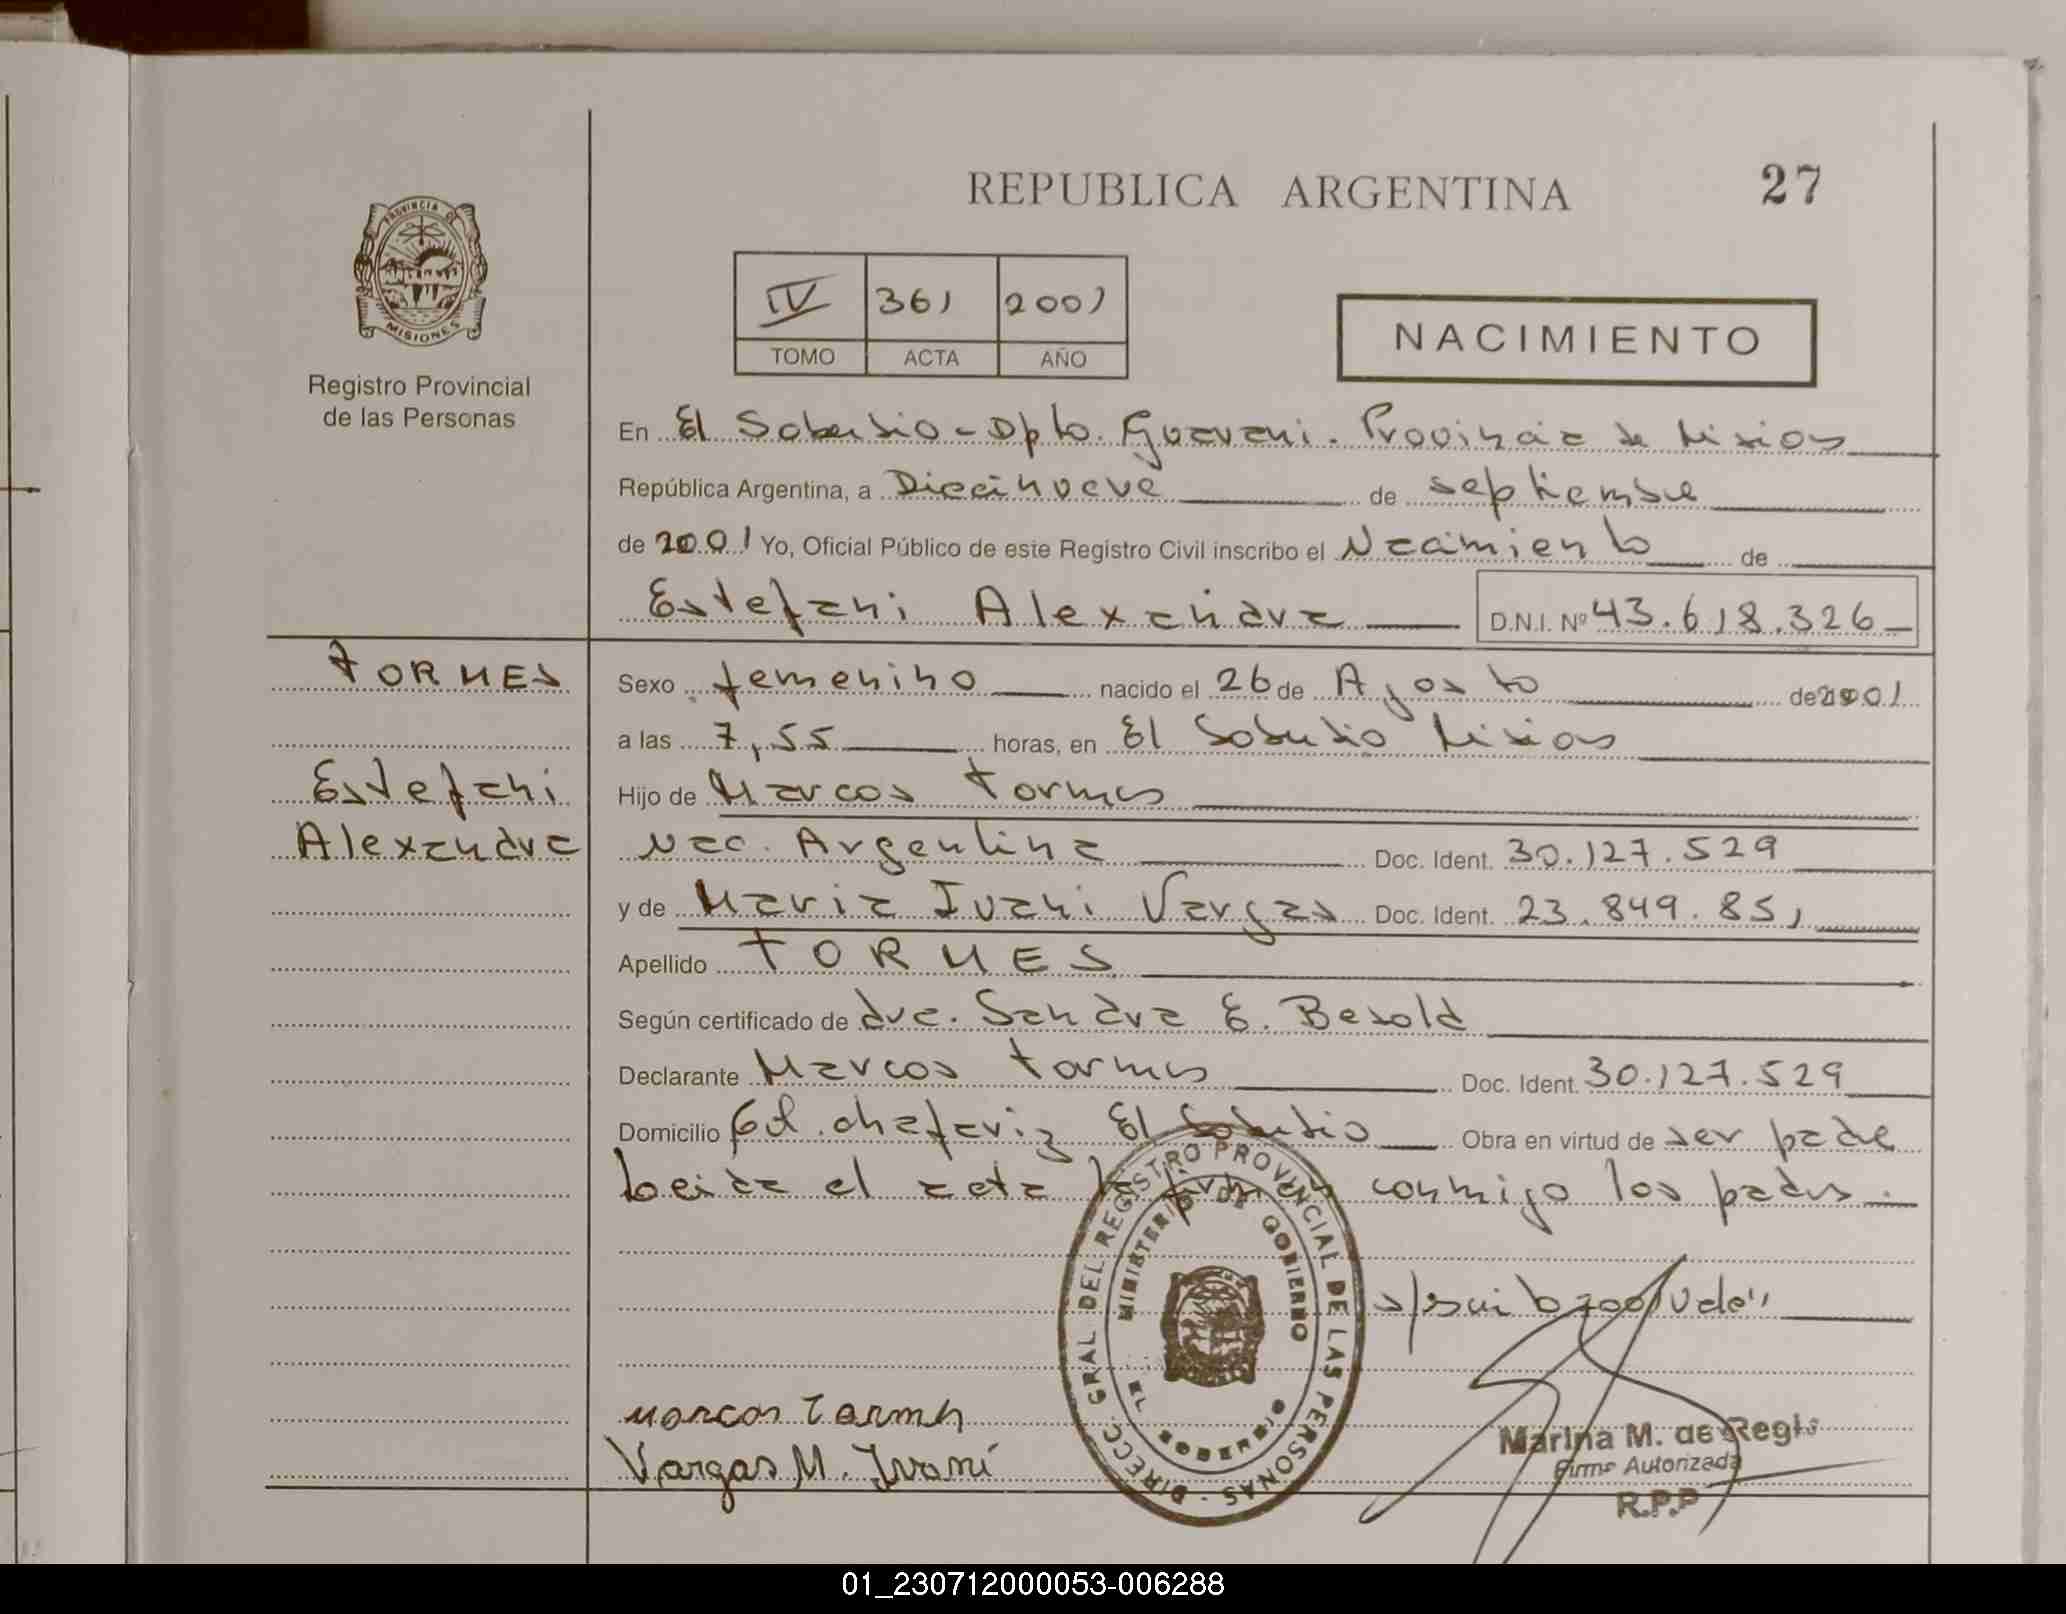 REPUBLICA ARGENTINA
27
PROVINCIA DE
MISIONES
Registro Provincial
de las Personas
IV 361 2001
TOMO ACTA AÑO
NACIMIENTO
En El Soberbio - Dpto. Guarani. Provincia de Misiones
República Argentina, a Diecinueve de septiembre
de 2001 Yo, Oficial Público de este Registro Civil inscribo el Nacimiento de
Estefani Alexandra D.N.I. Nº 43.618.326
TORMES
Sexo femenino nacido el 26 de Agosto de 2001
a las 7,55 horas, en El Soberbio Misiones
Estefani
Hijo de Marcos Tormes
Alexandra
Nac. Argentina Doc. Ident. 30.127.529
y de Maria Ivani Vargas Doc. Ident. 23.849.851
Apellido TORMES
Según certificado de dra. Sandra E. Besold
Declarante Marcos Tormes Doc. Ident. 30.127.529
Domicilio Col. chafariz El Soberbio Obra en virtud de ser padre
Leida el acta la firman conmigo los padres.
DIRECC. GRAL. DEL REGISTRO PROVINCIAL DE LAS PERSONAS
MINISTERIO DE GOBIERNO
EL SOBERBIO
Marcos Tormes
Vargas M. Ivani
Marina M. de Regis
Firma Autorizada
R.P.P
01_230712000053-006288